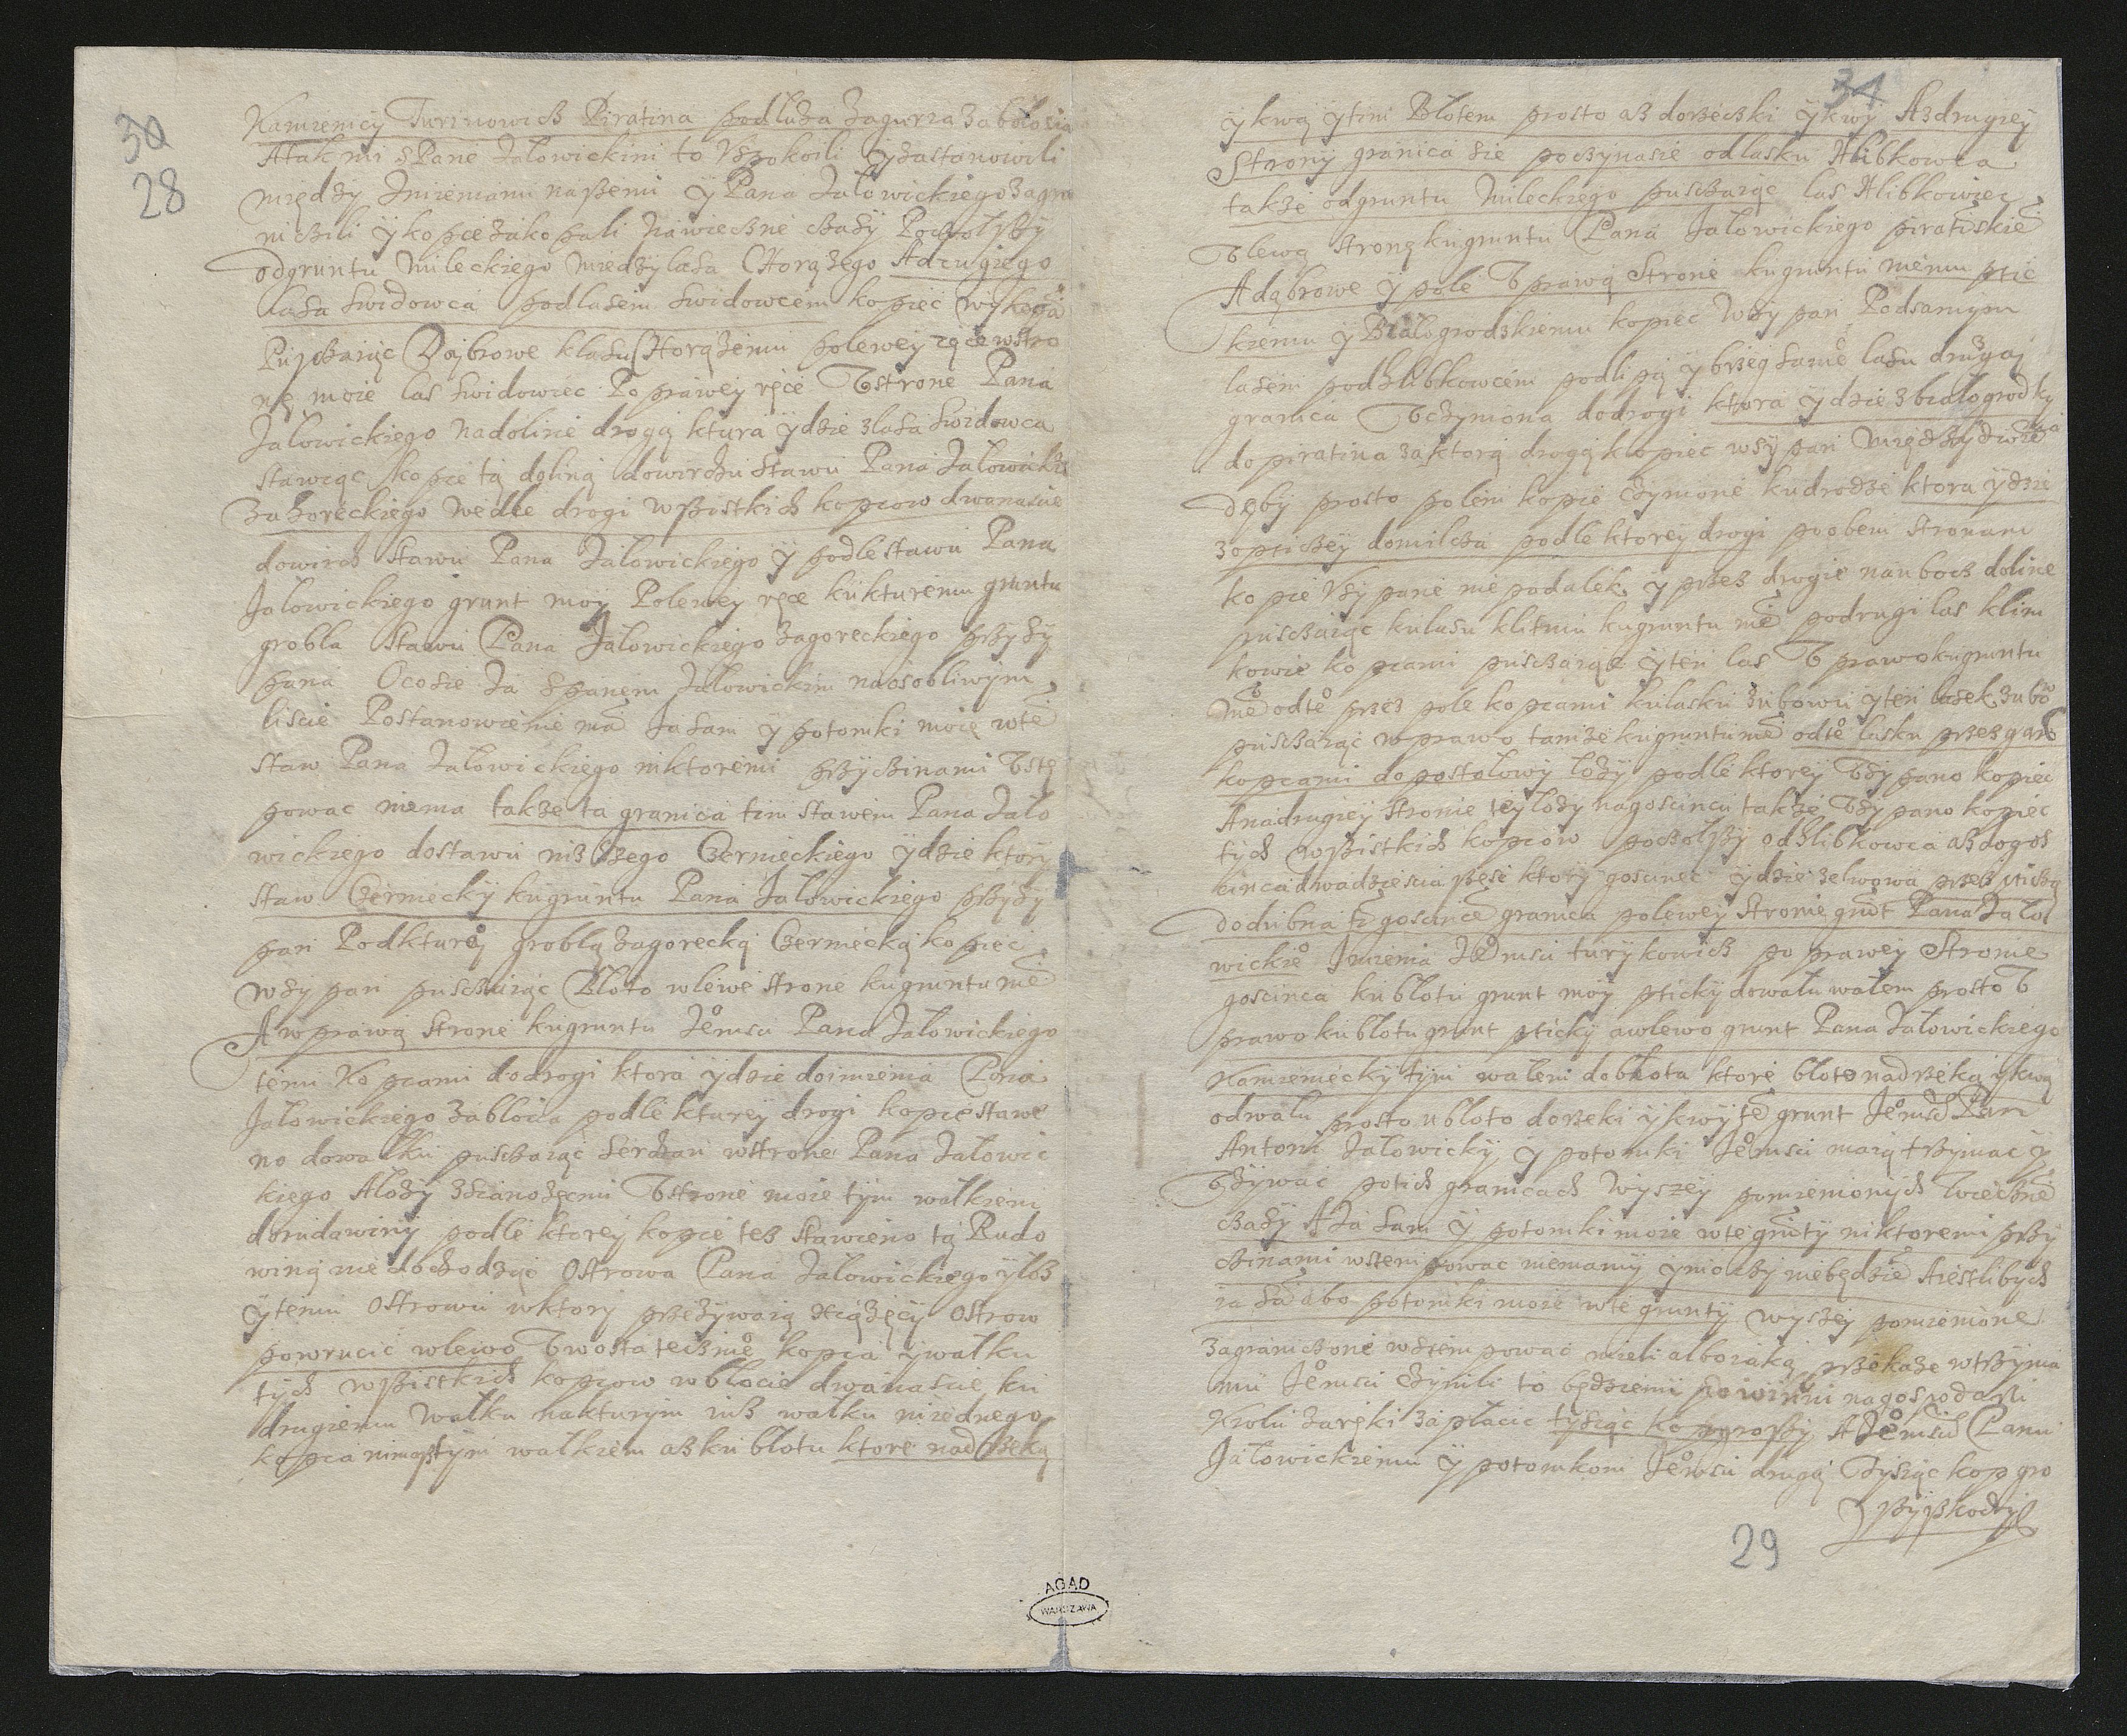 30
28
Kamienicÿ Turinowich Piratina podluża Zagurza zabłoscia
A tak mi s Pane Jałowickim to Vspokoili ÿ zastanowili
międzÿ Jmieniami naszemi ÿ Pana Jałowickiego zagra
niczili ÿ kopce zakopali na wieczne czasÿ Poczołszÿ
od gruntu Mileckiego miedzÿ lasa Chorązego A drugiego
lasa Swidowca pod lasem Swidowcem kopiec wÿkopa
Puszczaiąc Dąbrowe k lasu Chorążemu po lewey ręce w stro
nę moie las Swidowiec Po prawey ręce V strone Pana
Jałowickiego na dolinie drogą ktura ÿdzie z lasa Swidowca
stawiąc kopce tą doliną do wirchu Stawu Pana Jałowicki
Zahoreckiego wedle drogi wszistkich kopcow dwanascie
do wirch Stawu Pana Jałowickiego ÿ podle stawu Pana
Jałowickiego grunt moÿ Po lewey ręce ku kturemu gruntu
grobla Stawu Pana Jałowickiego Zagoreckiego przÿsÿ
pana O co sie Ja s panem Jałowickim na osobliwÿm
liscie Postanowienie ma Ja sam ÿ potomki moie w te
staw Pana Jałowickiego niktoremi przÿczinami Vstę
powac niema takze ta granica tim stawem Pana Jało
wickiego do stawu nizszego Czernieckiego ÿdzie ktorÿ
staw Czerniecky ku gruntu Pana Jałowickiego przÿsÿ
pan Pod kturą groblą Zagorecką Czerniecką kopiec
wsÿ pan puszczaiąc Błoto w lewe strone ku gruntu me
A w prawą strone ku gruntu Je͏̊msci Pana Jałowickiego
temi kopcami do drogi ktora ÿdzie do imienia Pana
Jałowickiego Zabłocia podle kturey drogi kopce stawe
no do wałku puszczaiąc Serdzan w strone Pana Jałowic
kiego A lozÿ z sianozęcmi V strone moie tÿm wałkiem
do rudawinÿ podle ktorey kopce tez stawieno tą Rudo
winą nie dochodząc Ostrowa Pana Jałowickiego ÿ łoz
ÿ temu Ostrowu w ktory przezÿwaią xiązęcÿ Ostrow
powrucic w lewo V w ostateczne kopca ÿ wałku
tÿch wszistkich kopcow w błocie dwanascie ku
drugiemu wałku na kturÿm iuz wałku niednego
kopca nimasz tÿm wałkiem asz ku błotu ktore nad rzeką
34
ÿkwą ÿ tim Błotem prosto asz do rzeczki ÿkwÿ A z drugieÿ
Stronÿ granica sie poczÿna sie od lasku Hlibkowca
takze od gruntu Mileckiego puszczaiąc las Hlibkowiec
V lewą stronę ku gruntu Pana Jałowickiego piratinskie
A dąbrowe ÿ pole V prawą Strone ku gruntu memu ptic
kiemu ÿ Białogrodskiemu kopiec Vsÿ pan Pod samÿm
lasem pod Hlibkowcem pod lipą ÿ brzeg same lasu drugaj
granica Vczÿniona do drogi ktora ÿdzie z białogrodky
do piratina za ktorą drogą kopiec wsÿ pan międzÿ dwie͏ma
dębÿ prosto polem kopce czÿnione ku drodze ktora ÿdzie
z opticzeÿ do milcza podle ktorey drogi po obem stronam
kopce Vsÿ pane nie podalek ÿ przez drogie na ubocz doline
puszczaiąc ku lasu klitniu ku gruntu me po drugi las klim
kowie kopcami puszczaiąc ÿ ten las V prawo ku gruntu
me od te przez pole kopcami ku lasku zubowu ÿ ten lasek zubo
puszczaiąc w prawo tamze ku gruntu me od te lasku przez gaÿ
kopcami do postołowÿ łozÿ podle ktorey Vsÿ pano kopiec
A na drugieÿ stronie teÿ łozÿ na goscincu takze Vsÿ pano kopiec
tÿch wszistkich kopcow poczołszÿ od Hlibkowca asz do gos
cinca dwadziescia szesc ktorÿ gosciniec ÿdzie ze lwowa przez pticzą
do dubna te goscince granica po lewey stronie grut Pana Jało
wickie Jmienia Je̊msci turÿkowich po prawey Stronie
goscinca ku błotu grunt moÿ pticky do wału wałem prosto V
prawo ku błotu grunt pticky a w lewo grunt Pana Jałowickiego
Kamienieckÿ tÿm wałem do błota ktore błoto nad rzeką ÿkwą
od wału prosto u błoto do rzeki ÿkwÿ te grunt Je̊msc Pan
Antoni Jałowickÿ ÿ potomki Je̊msci maią trzÿmac ÿ
Vzÿwac po tich granicach wÿszeÿ pomienionÿch wieczne
czasÿ A Ja sam ÿ potomki moie w te grutÿ niktoremi przÿ
czinami wstempowac niemamÿ ÿ mocÿ nie będzie A iestlibÿch
ia sa abo potomki moie w te gruntÿ wÿszeÿ pomienione
zagraniczone wstempowac mieli albo iaką przekaze w trzÿma
niu Je̊msci czÿnili to będziemÿ powinni na gospodarsi
Krolu za ręki zapłacic tÿsiąc kop groszÿ A Je̊msci Panu
Jałowickiemu ÿ potomkom Je̊msci drugą Tÿsiąc kop gro
szÿ szkodÿ
29
AGAD
WARSZAWA